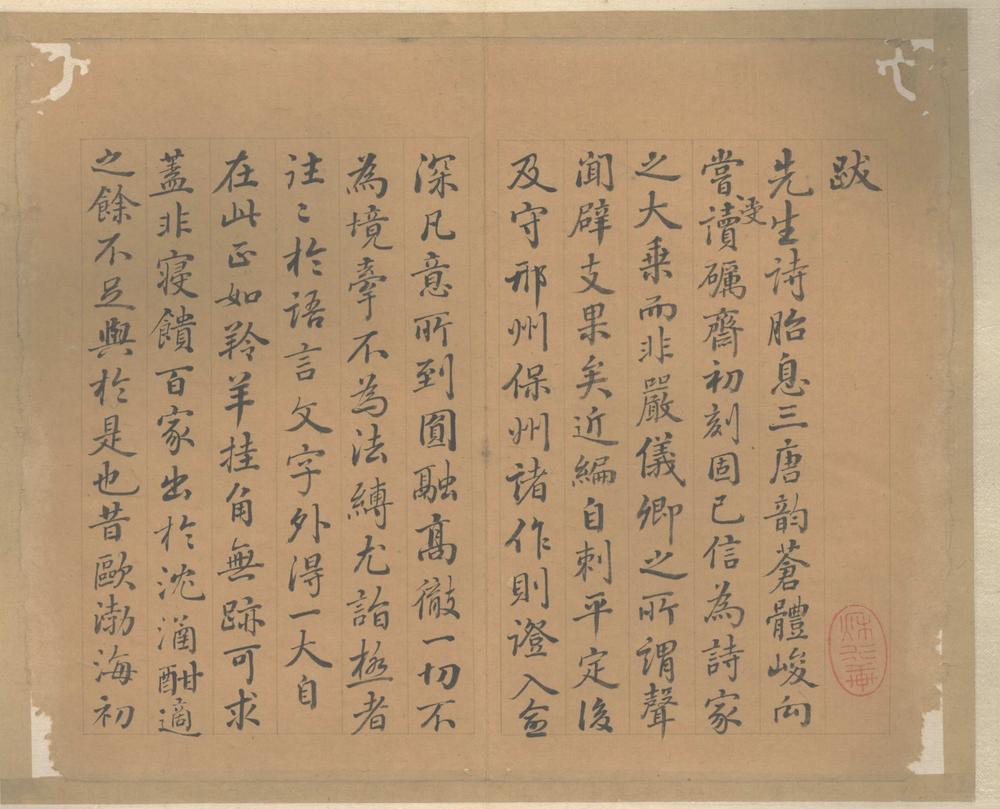 跋
先生詩胎息三唐韵蒼體峻向
嘗受讀礪齋初刻固已信為詩家
之大乗而非嚴儀卿之所謂聲
聞辟支果矣近編自刺平定後
及守邢州保州諸作則證入㑹
深凡意所到圓融髙徹一切不
為境牽不為法縛尤詣極者
往〻於語言文字外得一大自
在此正如羚羊挂角無跡可求
蓋非寢饋百家出於沈湎酣適
之餘不足與於是也昔歐渤海初